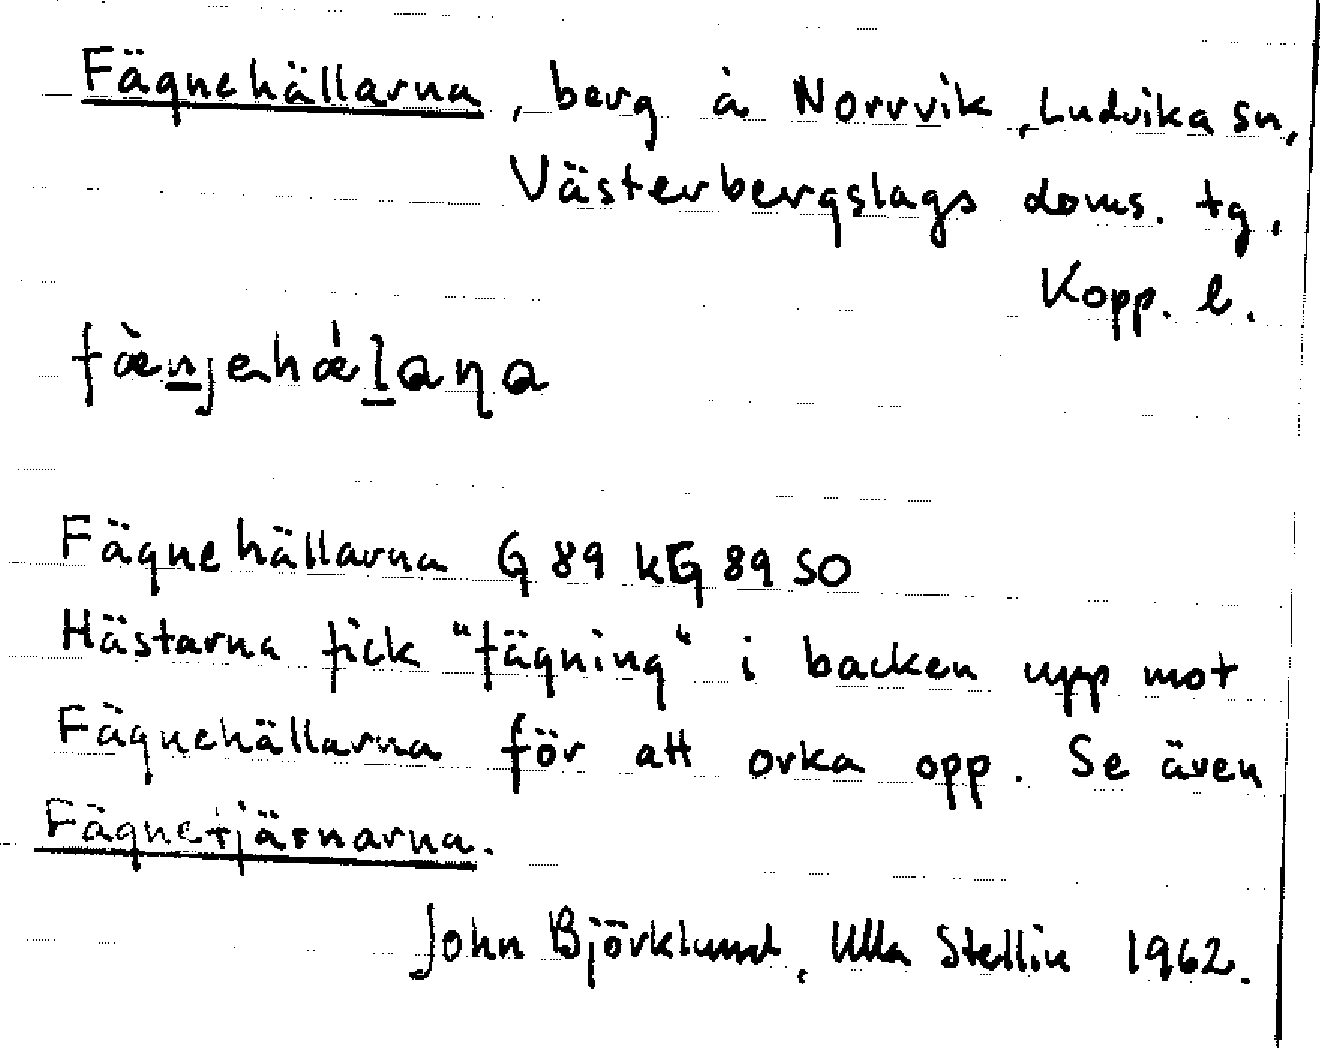 Fägnehällarna, berg å Norrvik, Ludvika sn,
Västerbergslags doms. tg,
Kopp. l.
fæ̀n̲jehǽl̲aɳa
Fägnehällarna G 89 kG 89 SO
Hästarna fick "fägning" i backen upp mot
Fägnehällarna för att orka opp. Se även
Fägnetjärnarna.
John Björklund, Ulla Stellin 1962.